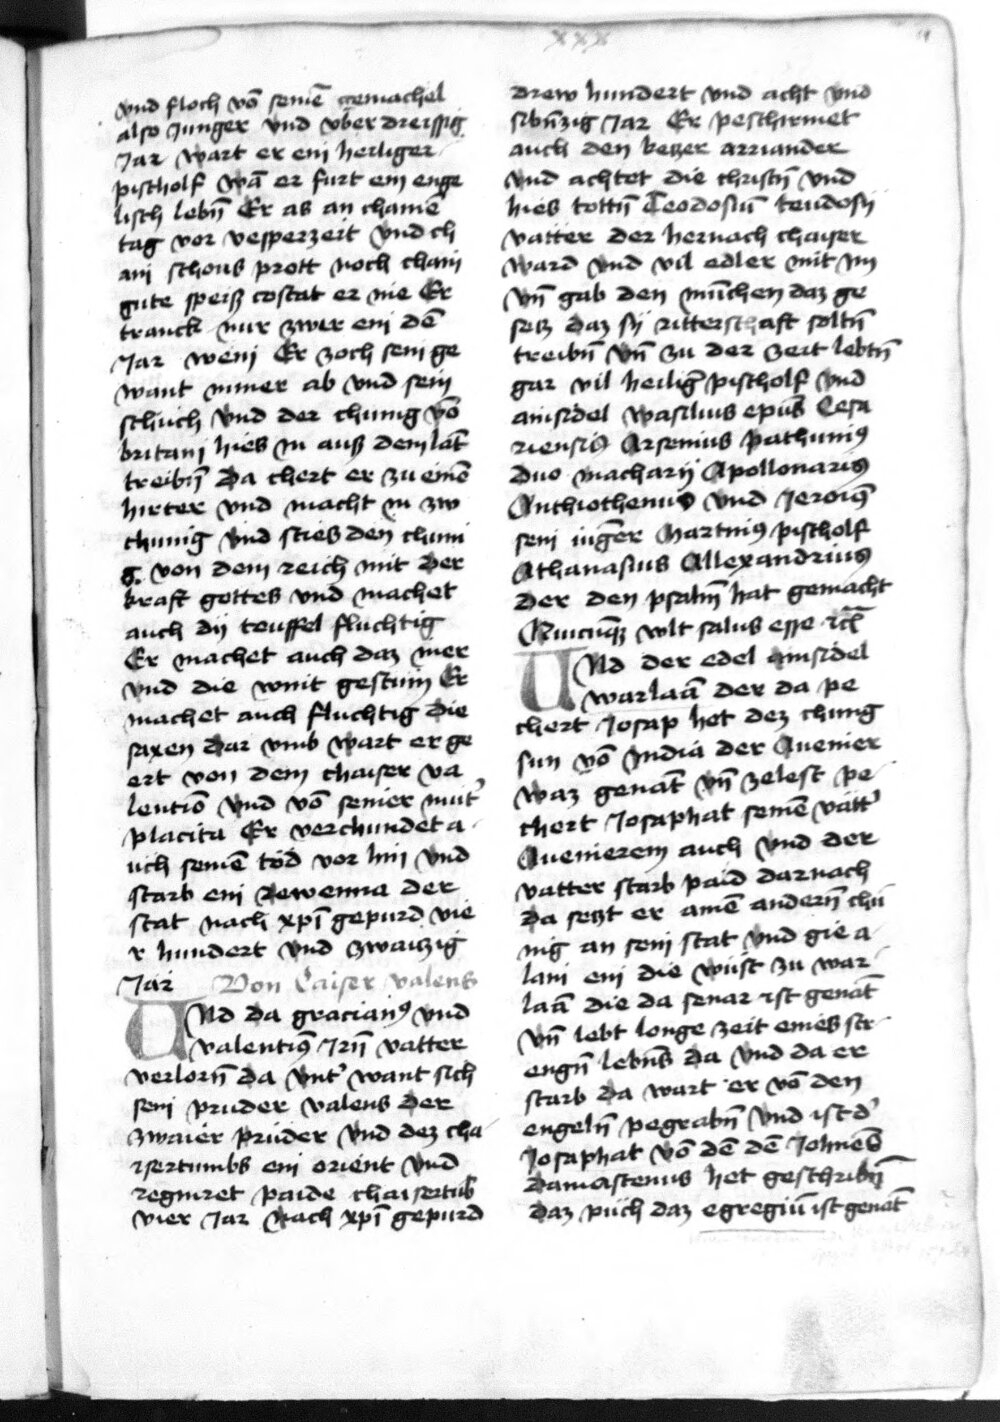 xxx
vnd floch vō seinē gemachel
also Junger vnd vber dreissig
Jar wart er ein heiliger
pischolf wā er furt ein enge
lisch lebn̄ Er as an chainē
tag vor vesperzeit vnd ch
ain schons prott noch chain
gute speisz costat er nie Er
tranck nur zwir ein dē
Jar wein Er zoch sein ge
want nimer ab vnd sein
schuch vnd der chunig vō
britani hies in ausz dem lāt
treibn̄ Da chert er zu einē
hirter vnd macht in zw
chunig vnd sties den chuni
g. von dem reich mit der
kraft gottes vnd machet
auch dij teuffel fluchtig
Er machet auch daz mer
vnd die wint gestum̄ Er
machet auch fluchtig die
saxen Dar vmb wart er ge
ert von dem chaiser va
lentiō vnd vō seiner mut'
placita Er verchundet a
uch seinē tod vor hin vnd
starb ein rewenna der
stat nach xpī gepurd vie
r hundert vnd zwaitzig
Jar Von Caiser valens
Und Da gracian9 vnd
valentin9 Irn̄ vatter
verlorn̄ Da vnt' want sich
sein pruder valens der
zwaier pruder vnd dez cha
isertumbs ein orient vnd
regniret paide chaisertūb
vier Jar nach xpī gepurd
drew hundert vnd acht vnd
sibn̄zig Jar Er peschirmet
auch den ketzer arriander
vnd achtet die christn̄ vnd
hies tottn̄ Teodosiū teudosij
vatter der hernach chaiser
ward vnd vil edler mit im
vn̄ gab den mūchen daz ge
setz daz sij ritterschaft soltn̄
treibn̄ vn̄ zu der zeit lebtn̄
gar vil heiliḡ pischolf vnd
ainsidel wasilius epūs Cesa
riensis Arsenius pathuni9
duo macharij Apollonari9
Anthiothenus vnd Jeroi9
sein iunḡer Martin9 pischolf
Athanasius Allexandrius
der den psalm̄ hat gemacht
Quicūqz wlt salus esse ꝛc̄
Und der edel ainsidel
warlaā der da pe
chert Josap het dez chung
sun vō India der Auenier
waz genāt vn̄ zelest pe
chert Josaphat seinē vatt'
Auenierem auch vnd der
vatter starb paid darnach
da setzt er ainē andern̄ chu
nig an sein stat vnd gie a
lain ein die wüst zu war
laā die da senar ist genāt
vn̄ lebt longe zeit eines str
engn̄ lebns̄ da vnd da er
starb da wart er vō den
engeln̄ pegrabn̄ vnd ist d'
Josaphat vō dē dē Johnēs
Damastenus het geschribn̄
daz puch daz egregiū ist genāt